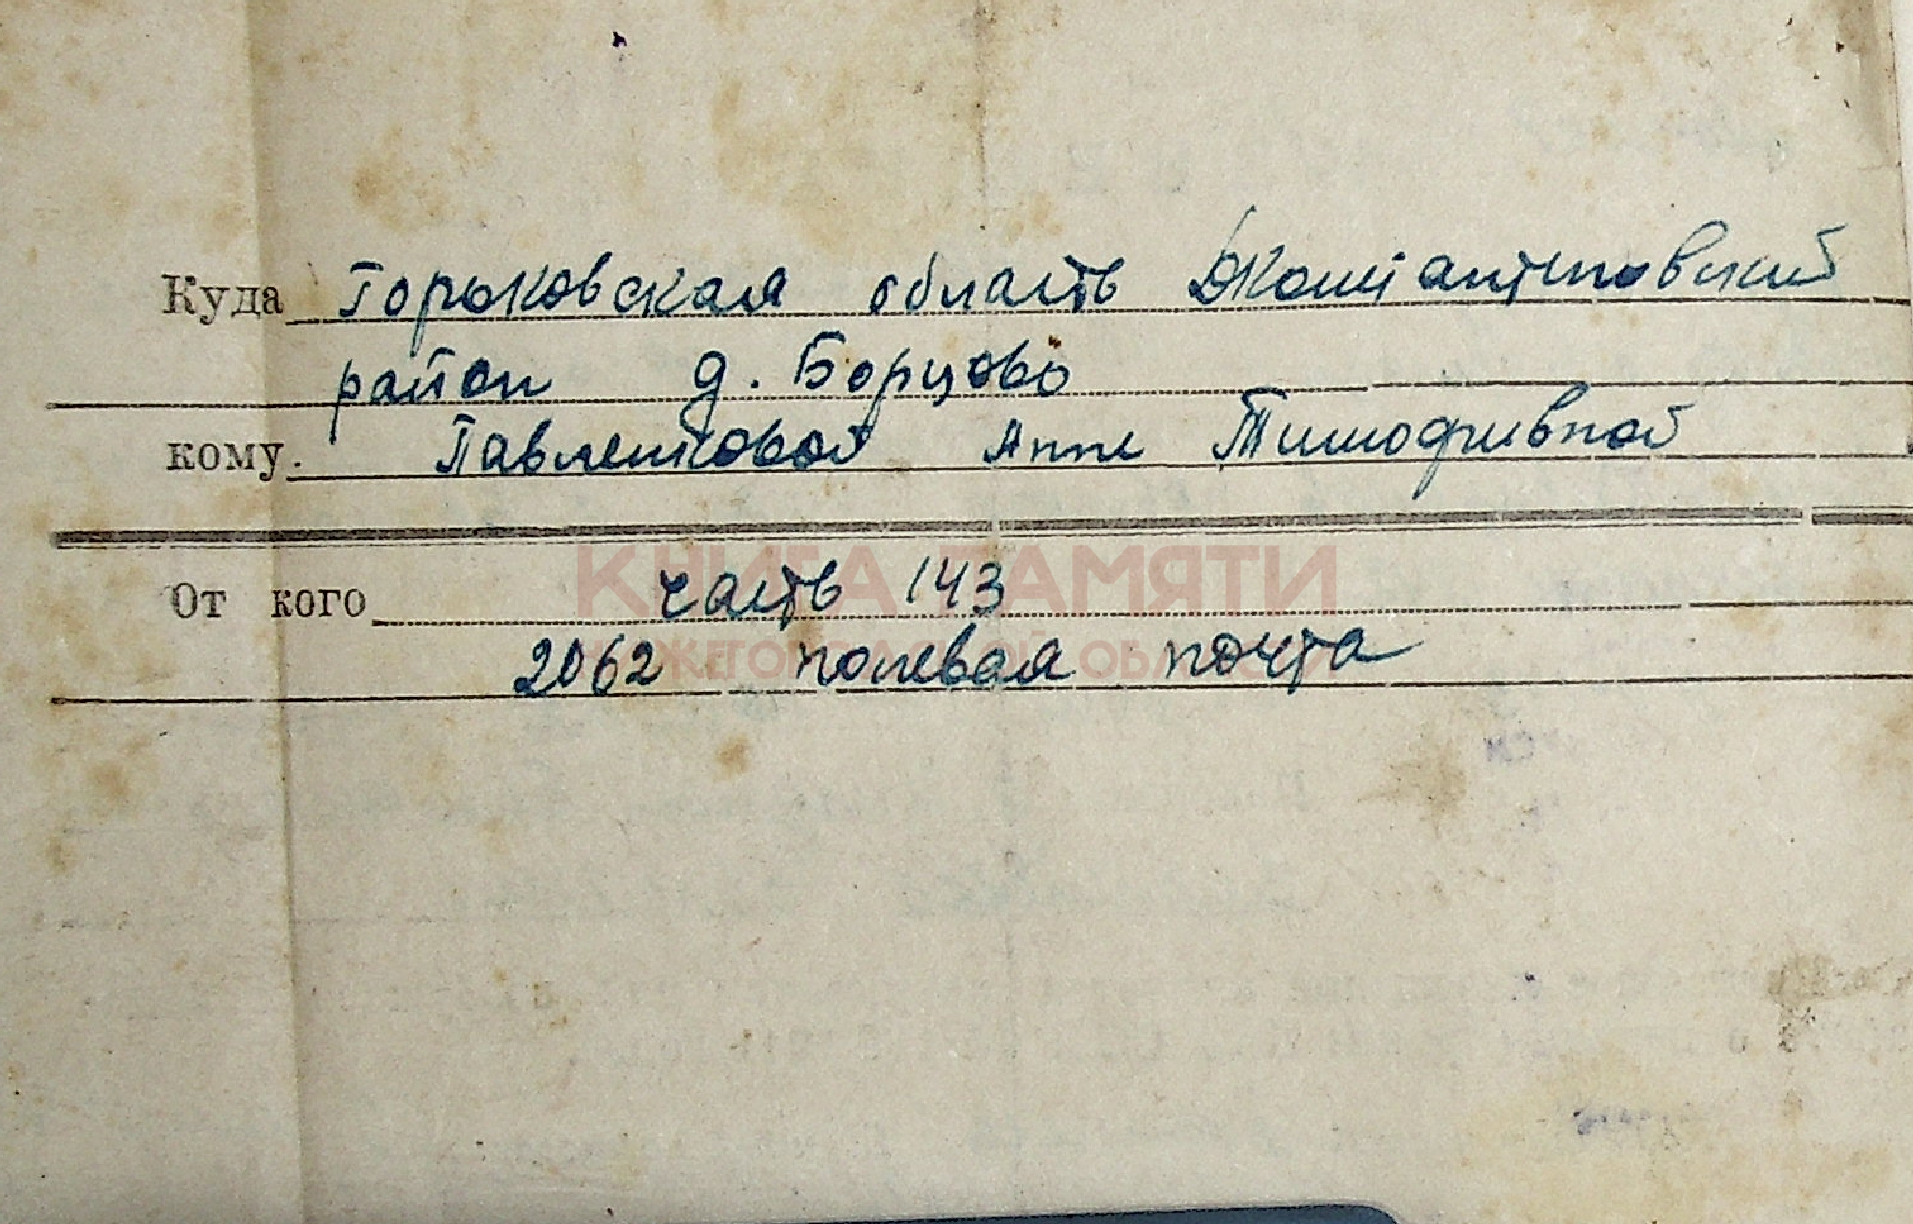 Куда Горьковская область Дконстантиновский
район д. Борцово
кому. Павленковой Анне Тимофивной
КНИГА ПАМЯТИ
От кого часть 143
НИЖЕГОРОДСКОЙ ОБЛАСТИ
2062 полевая почта